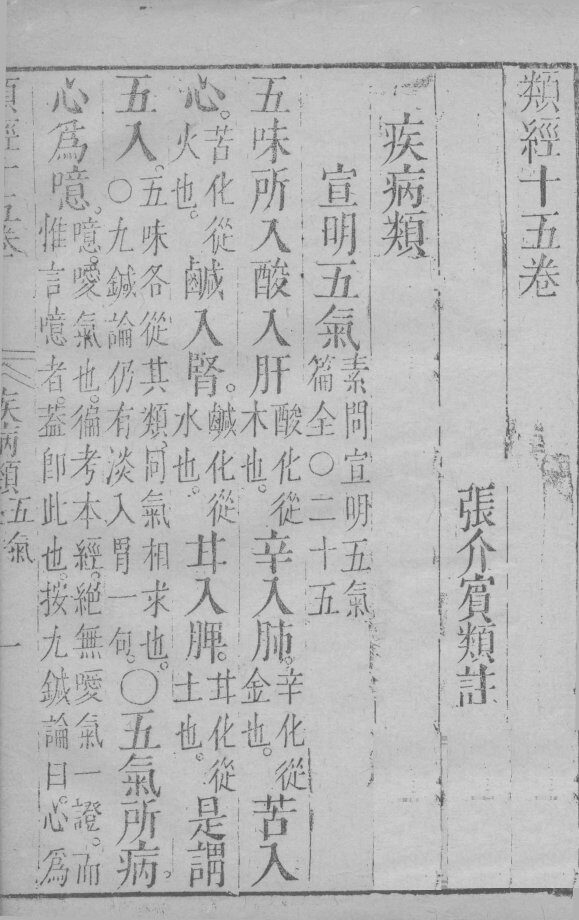 類經十五卷
張介賓類註
疾病類
宣明五氣素問宣明五氣篇全〇二十五
五味所入酸入肝酸化從木也。辛入肺。辛化從金也。苦入
心。苦化從火也。鹹入腎。鹹化從水也。甘入脾。甘化從土也。是謂
五入。五味各從其類同氣相求也。〇九鍼論仍有淡入胃一句。〇五氣所病。
心爲噫。噫噯氣也。徧考本經。絕無噯氣一證。而惟言噫者。葢卽此也。按九鍼論曰。心爲
類經十五卷 疾病類 五氣 一